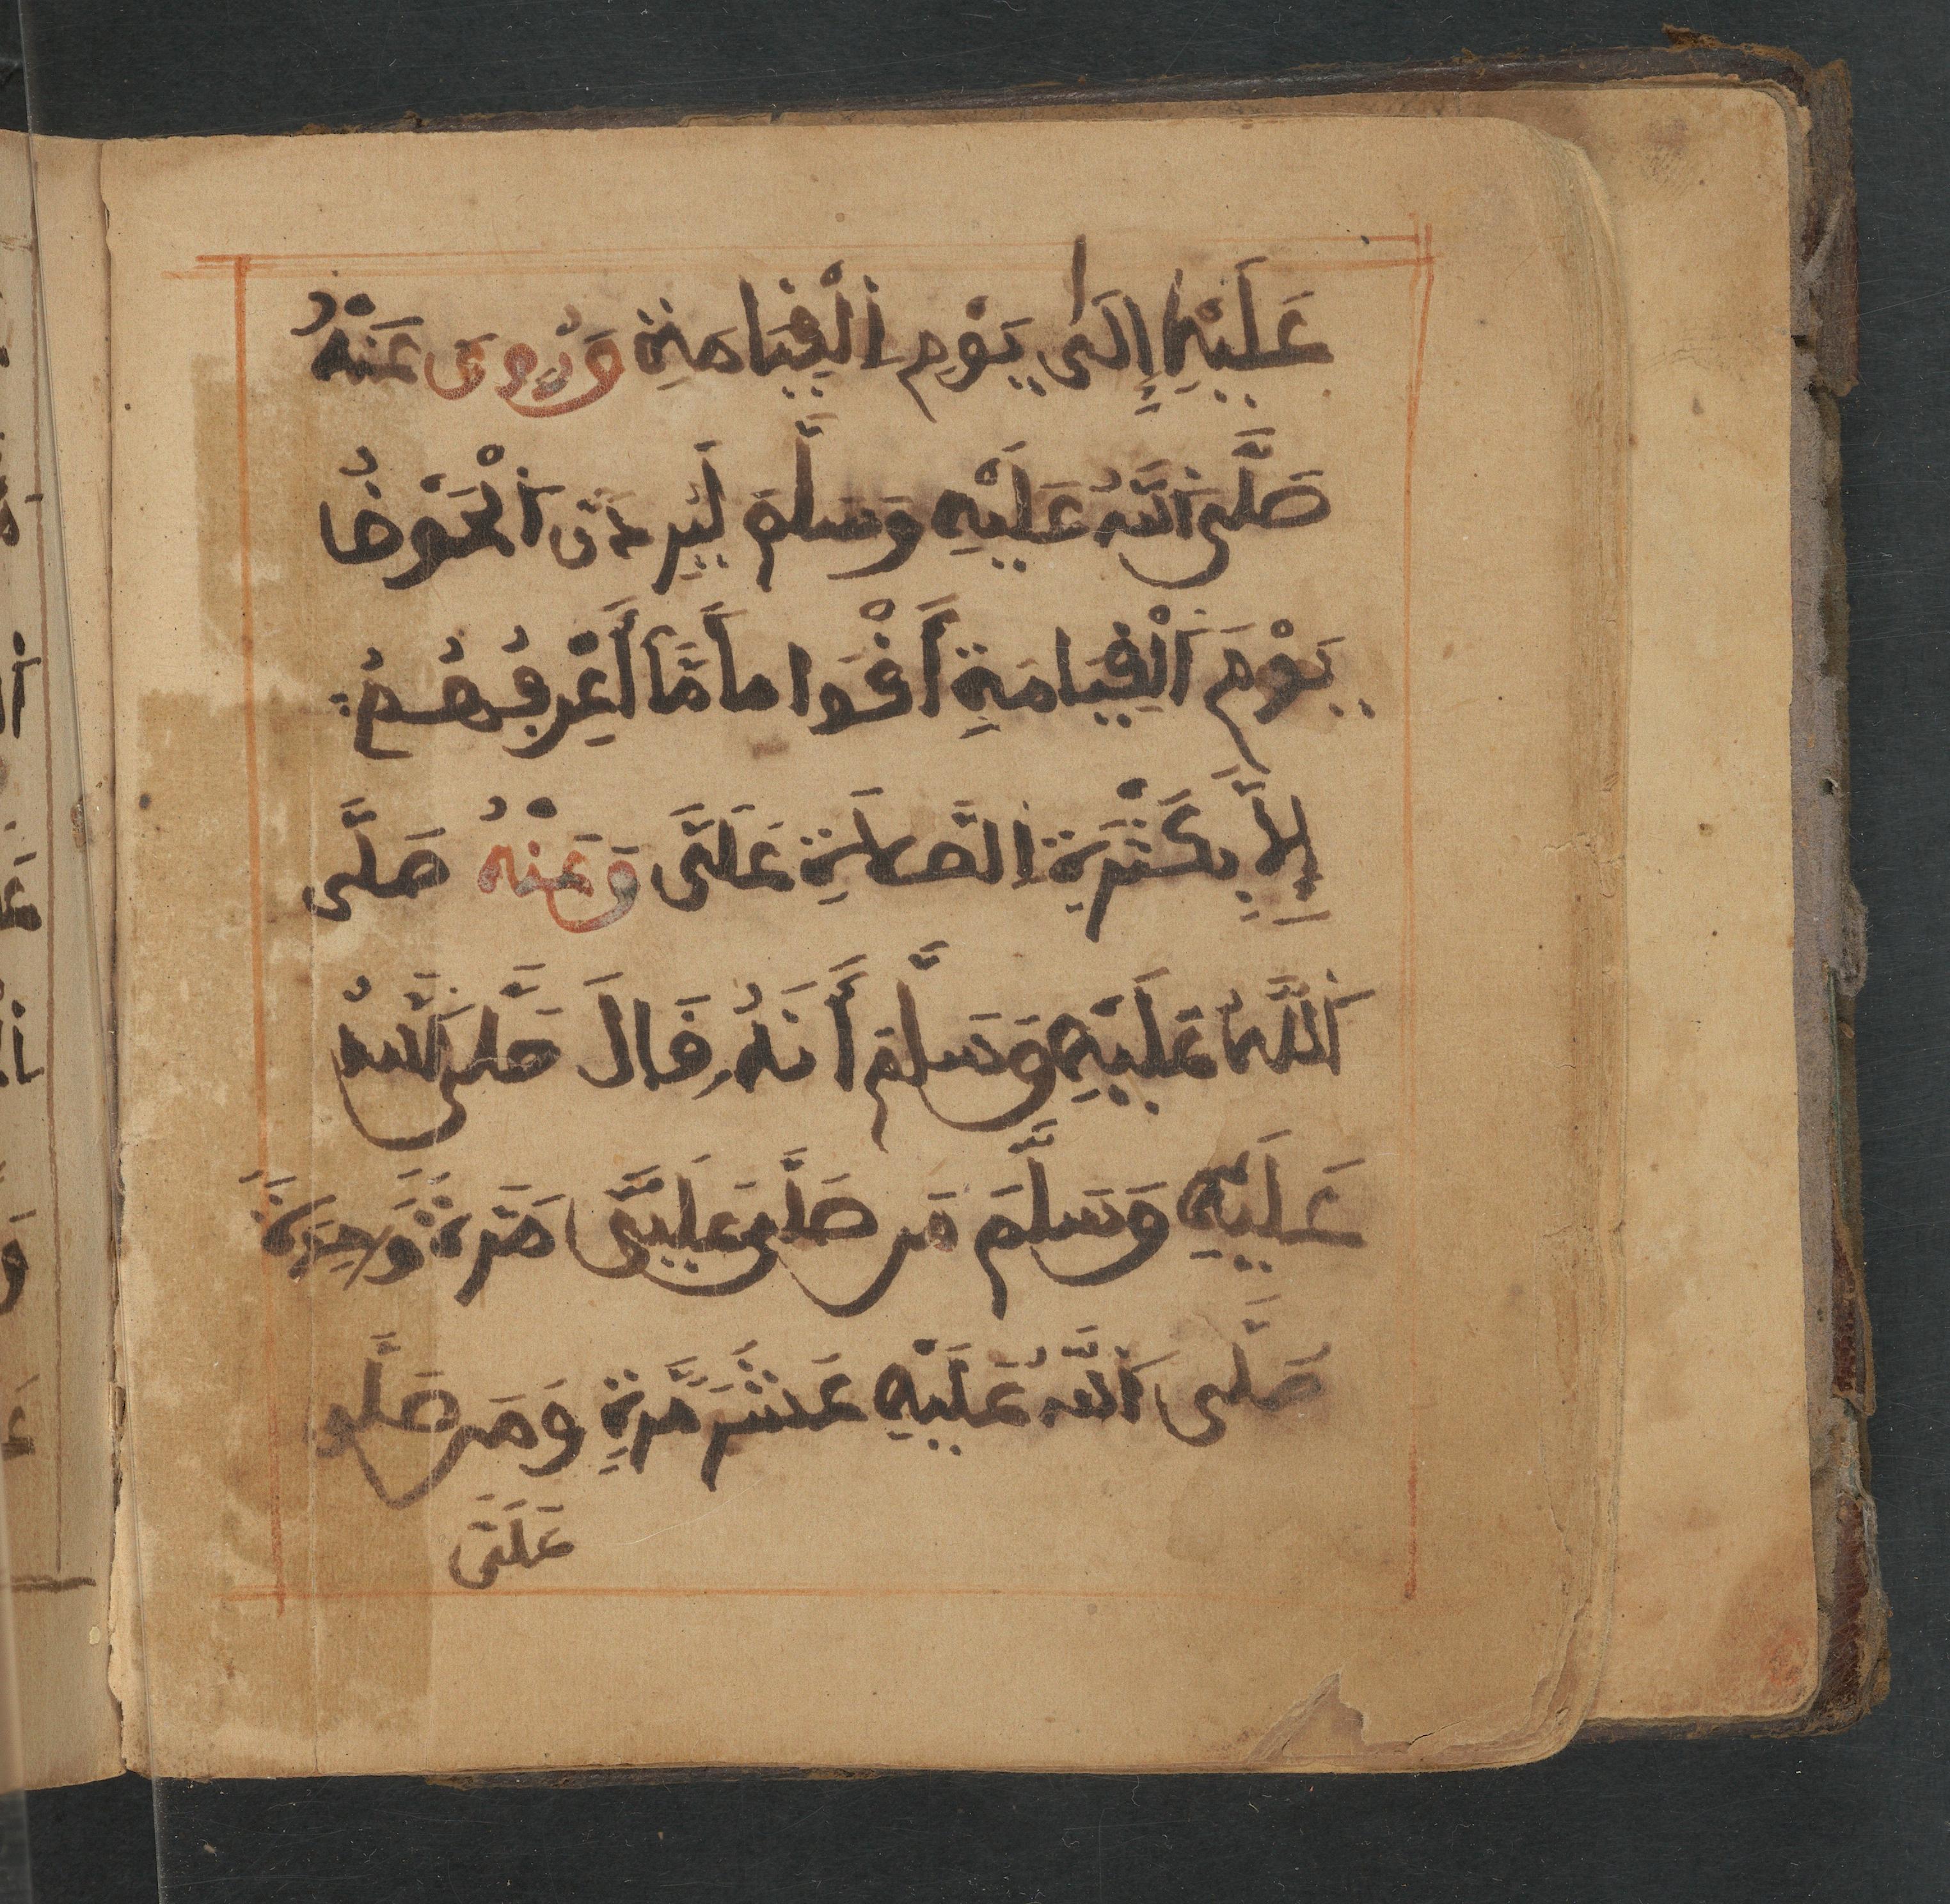 عَلَيْهِ إِلَى يَوْمِ اِلْقِيَامَةِ وَرُوِيَ عَنْهُ
صَلَّى اَللَّهُ عَلَيْهِ وَسَلَّمَ لَيَرِدَنَّ اَلْحَوْضَ
يَوْمَ اَلْقِيَامَةِ أَقْوَامٌ مَّا أَعْرِفُهُمُ
إِلاَّ بِكَثْرَةِ اِلصَّلَاةِ عَلَيَّ وَعَنْهُ صَلَّى
اَللَّهُ عَلَيْهِ وَسَلَّمَ أَنَّهُ قَالَ صَلَّى اَللَّهُ
عَلَيْهِ وَسَلَّمَ مَن صَلَّى عَلَيَّ مَرَّةً وَاحِدَةً
صَلَّى اَللَّهُ عَلَيْهِ عَشْرَ مَرَّةٍ وَمَن صَلَّى
عَلَيَّ